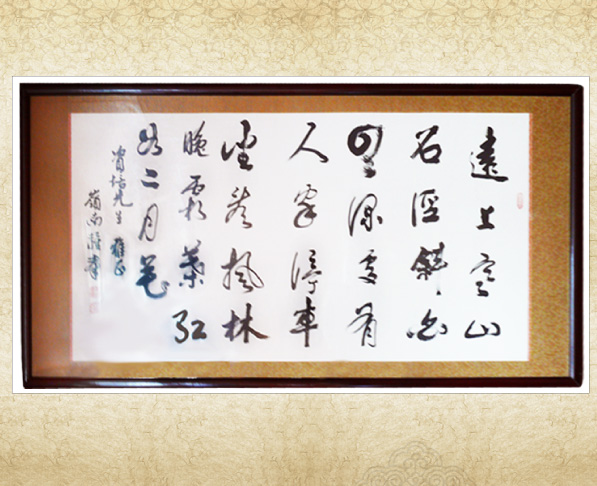 遠上寒山
石徑斜白
雲深處有
人家停車
坐愛楓林
晚霜葉紅
於二月花
先生雅正
嶺南